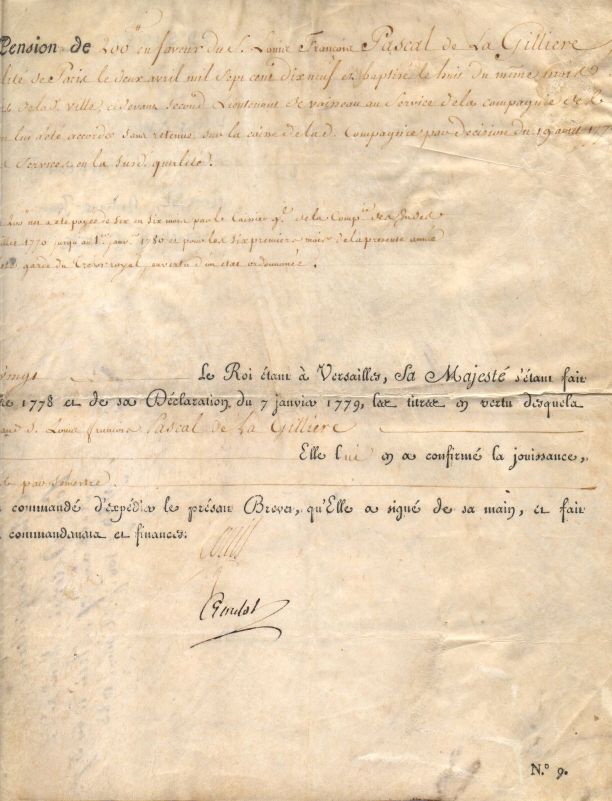 Pension de 200 ᵗᵗ en faveur du S. Louis François Pascal de La Gilliere
lité de Paris le deux avril mil sept cent dix neuf et baptisé le huit du meme mois
de la d. ville, cidevant second Lieutenant de vaisseau au Service de la compagnie des
lui a été accordée sans retenue sur la caisse de la d. Compagnie par décision du 19 avril 17
Services en la susd. qualité.
200ᵗᵗ ont été payée de six en six mois par le Caissier gᵃˡ de la Compᵉ des Indes
1770 jusqu'au 1ᵉʳ janv. 1780 et pour les six premiers mois de la presente année
garde du Tresor royal, en vertu d'un etat ordonnancé.
vingt Le Roi étant à Versailles, Sa Majesté s'étant fait
1778 et de sa Déclaration du 7 janvier 1779, les titres en vertu desquels
S. Louis françois Pascal de La Gilliere
Elle lui en a confirmé la jouissance,
par semestre.
commandé d'expédier le présent Brevet, qu'Elle a signé de sa main, et fait
commandemens et finances.
Louis
N.° 9.